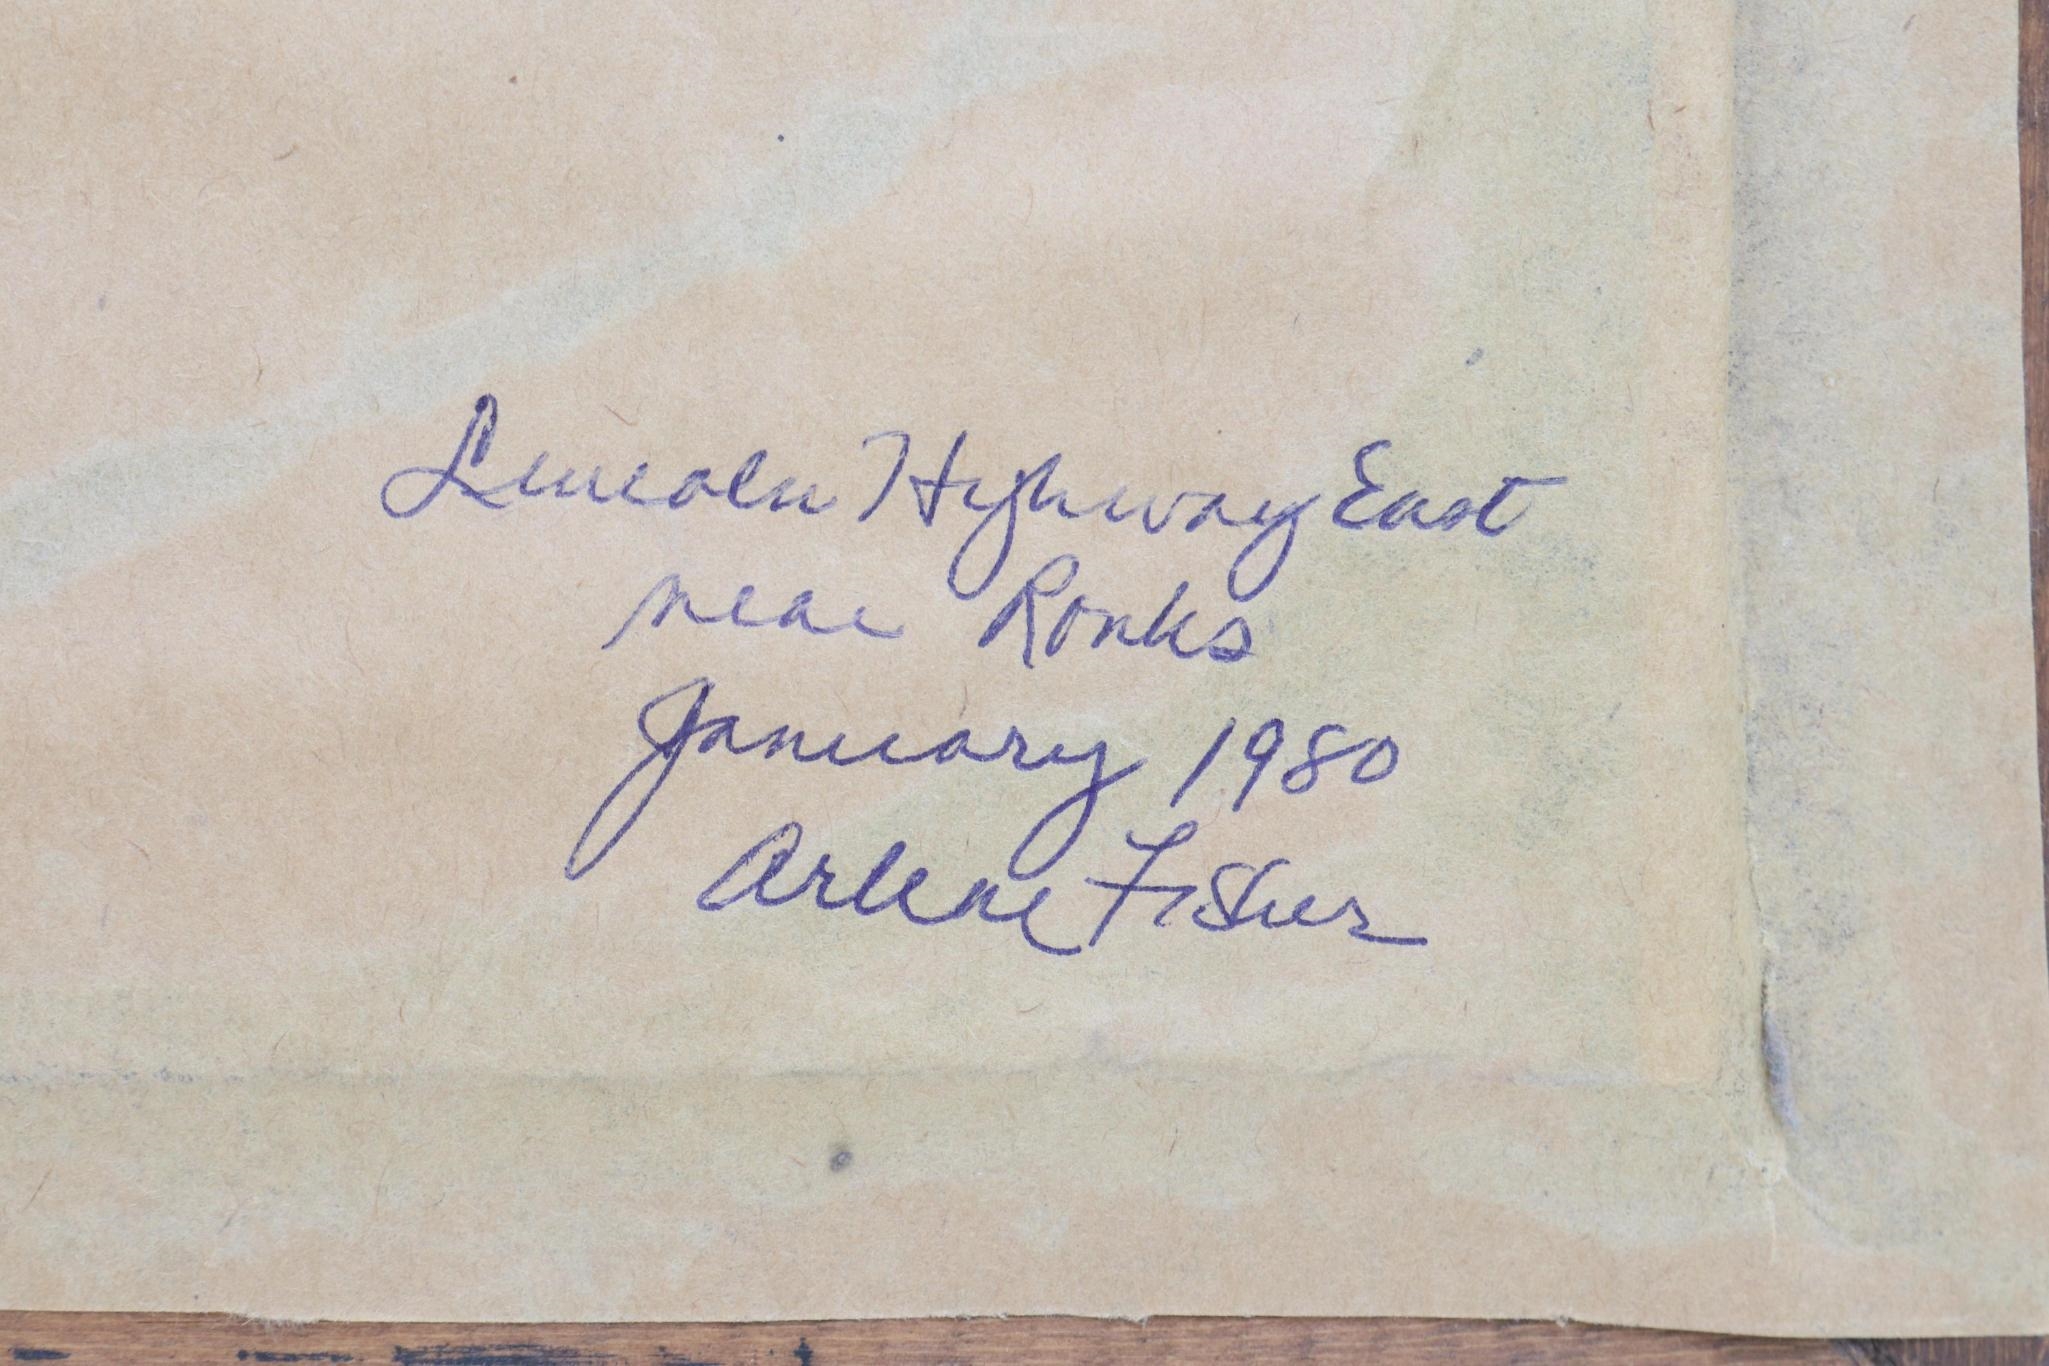 Lincoln Highway East
near Ronks
January 1980
Arlene Fisher